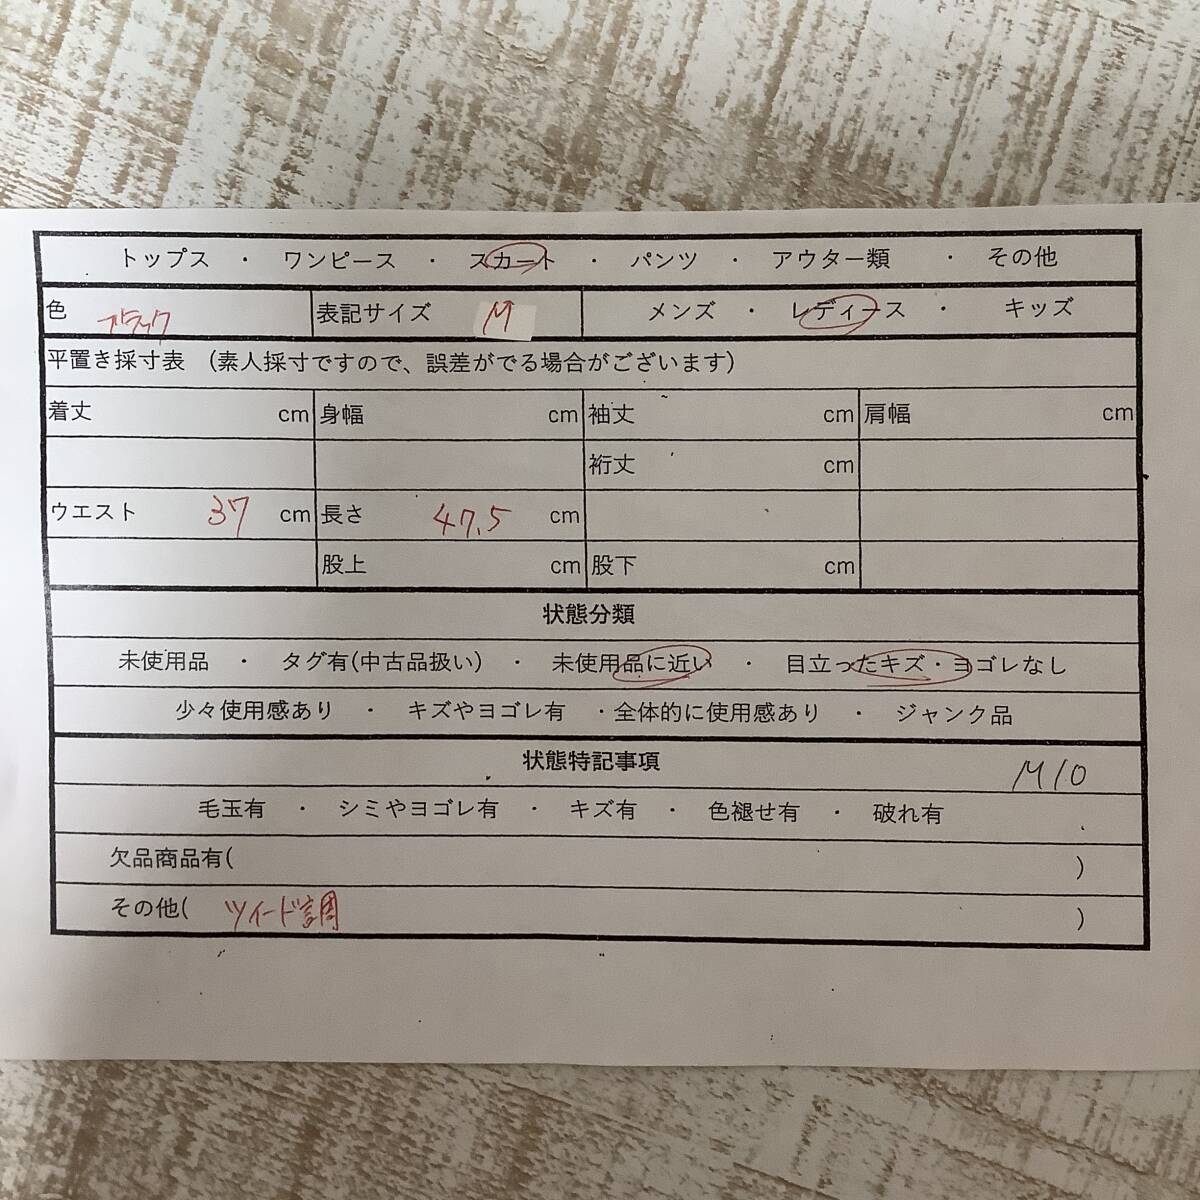 トップス ・ ワンピース ・ スカート ・ パンツ ・ アウター類 ・ その他
色 ブラック 表記サイズ M メンズ ・ レディース ・ キッズ
平置き採寸表 (素人採寸ですので、誤差がでる場合がございます)
着丈 cm 身幅 cm 袖丈 cm 肩幅 cm
裄丈 cm
ウエスト 37 cm 長さ 47.5 cm
股上 cm 股下 cm
状態分類
未使用品 ・ タグ有(中古品扱い) ・ 未使用品に近い ・ 目立ったキズ・ヨゴレなし
少々使用感あり ・ キズやヨゴレ有 ・全体的に使用感あり ・ ジャンク品
状態特記事項 M10
毛玉有 ・ シミやヨゴレ有 ・ キズ有 ・ 色褪せ有 ・ 破れ有
欠品商品有( )
その他( ツイード調 )